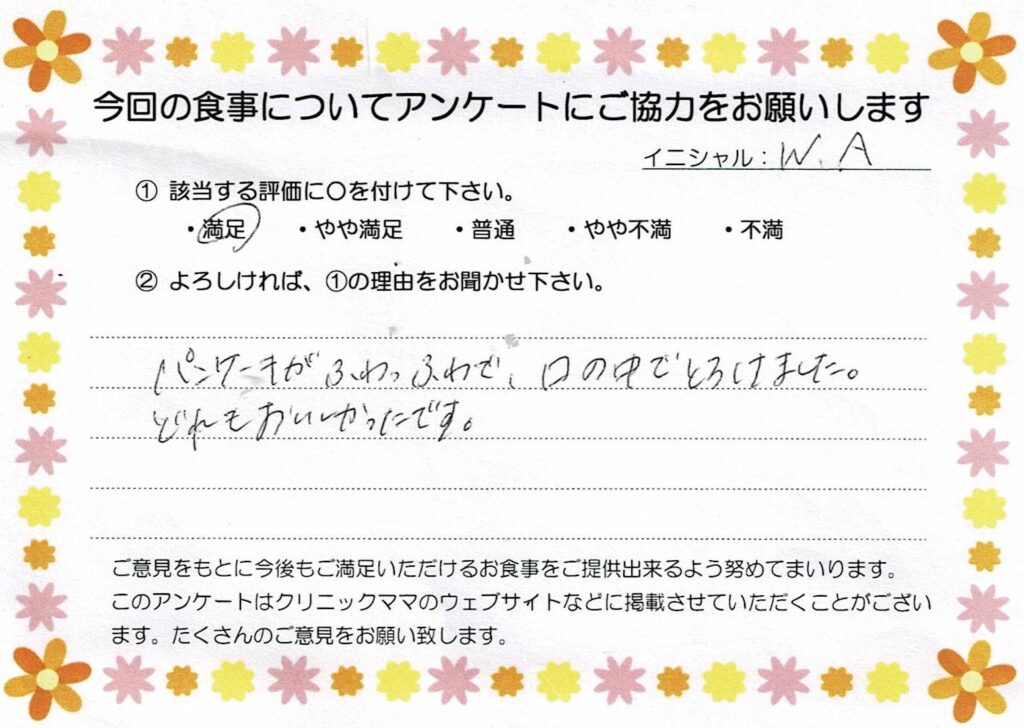 今回の食事についてアンケートにご協力をお願いします
イニシャル：W.A
① 該当する評価に○を付けて下さい。
・満足　・やや満足　・普通　・やや不満　・不満
② よろしければ、①の理由をお聞かせ下さい。
パンケーキがふわっふわで、口の中でとろけました。
どれもおいしかったです。
ご意見をもとに今後もご満足いただけるお食事をご提供出来るよう努めてまいります。
このアンケートはクリニックママのウェブサイトなどに掲載させていただくことがござい
ます。たくさんのご意見をお願い致します。